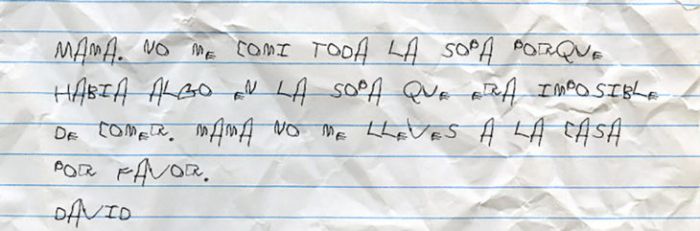 MAMA. NO ME COMI TODA LA SOPA PORQUE
HABIA ALGO EN LA SOPA QUE ERA IMPOSIBLE
DE COMER. MAMA NO ME LLEVES A LA CASA
POR FAVOR.
DAVID